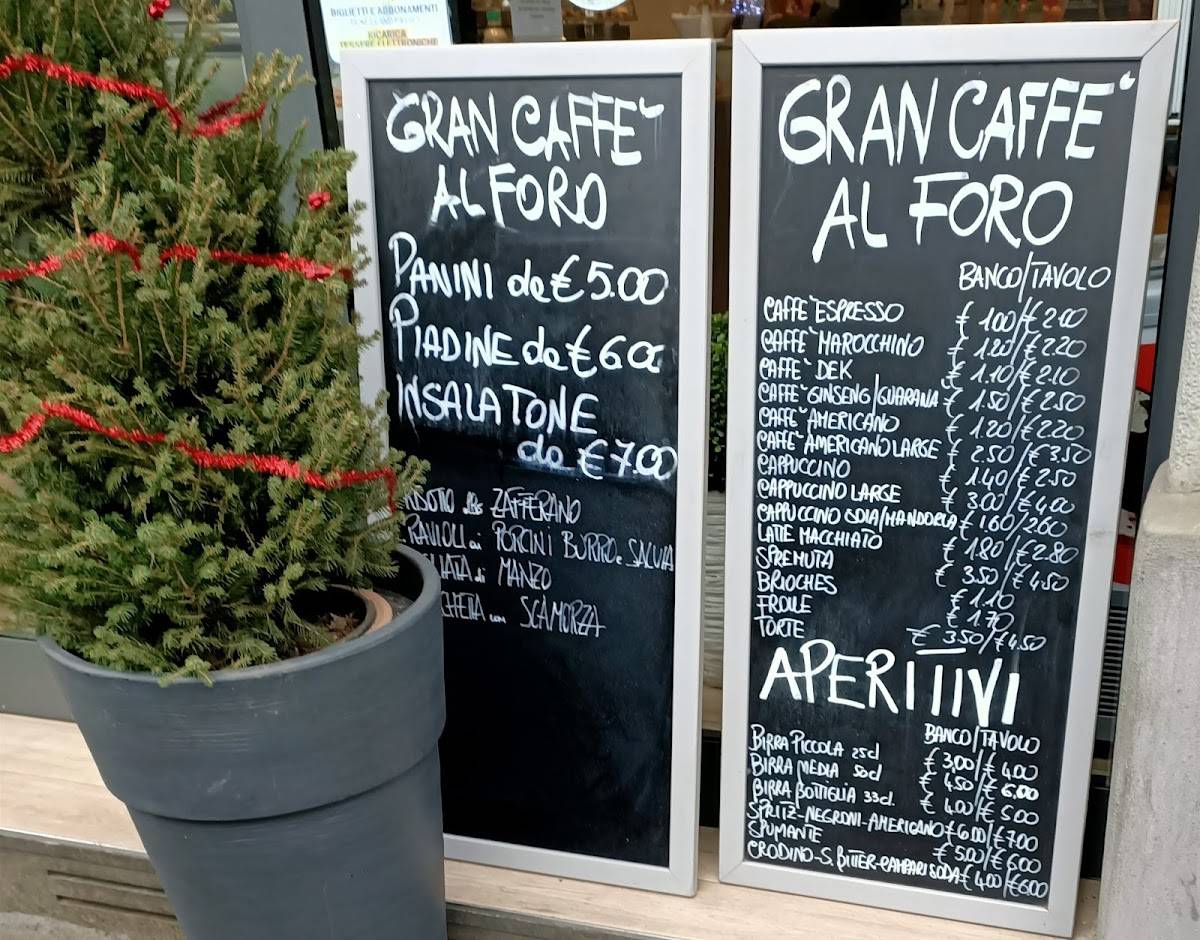 BIGLIETTI E ABBONAMENTI
RICARICA
TESSERE ELETTRONICHE
GRAN CAFFE`
AL FORO
PANINI da € 5.00
PIADINE da € 6.00
INSALATONE
da € 7.00
ZAFFERANO
RAVIOLI ai PORCINI BURRO e SALVIA
di MANZO
con SCAMORZA
GRAN CAFFE`
AL FORO
BANCO/TAVOLO
CAFFE` ESPRESSO € 1.00/€ 2.00
CAFFE` MAROCCHINO € 1.20/€ 2.20
CAFFE` DEK € 1.10/€ 2.10
CAFFE` GINSENG/GUARANA € 1.50/€ 2.50
CAFFE` AMERICANO € 1.20/€ 2.20
CAFFE` AMERICANO LARGE € 2.50/€ 3.50
CAPPUCCINO € 1.40/€ 2.50
CAPPUCCINO LARGE € 3.00/€ 4.00
CAPPUCCINO SOIA/MANDORLA € 1.60/2.60
LATTE MACCHIATO € 1.80/€ 2.80
SPREMUTA € 3.50/€ 4.50
BRIOCHES € 1.10
FROLLE € 1.70
TORTE € 3.50/€ 4.50
APERITIVI
BANCO/TAVOLO
BIRRA PICCOLA 25cl € 3,00/€ 4.00
BIRRA MEDIA 50cl € 4.50/€ 6.00
BIRRA BOTTIGLIA 33cl. € 4.00/€ 5.00
SPRITZ-NEGRONI-AMERICANO € 6.00/€ 7.00
SPUMANTE € 5.00/€ 6.00
CRODINO-S. BITTER-CAMPARI SODA € 4.00/€ 6.00